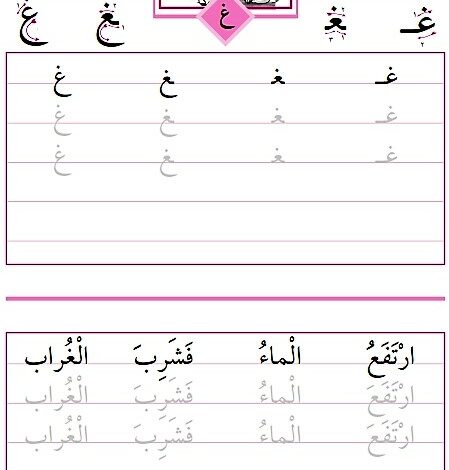 غـ ـغـ غ ـغ غ
غـ ـغـ ـغ غ
غـ ـغـ ـغ غ
غـ ـغـ ـغ غ
ارْتَفَعُ الْماءُ فَشَرِبَ الْغُراب
ارْتَفَعَ الْماءُ فَشَرِبَ الْغُراب
ارْتَفَعَ الْماءُ فَشَرِبَ الْغُراب